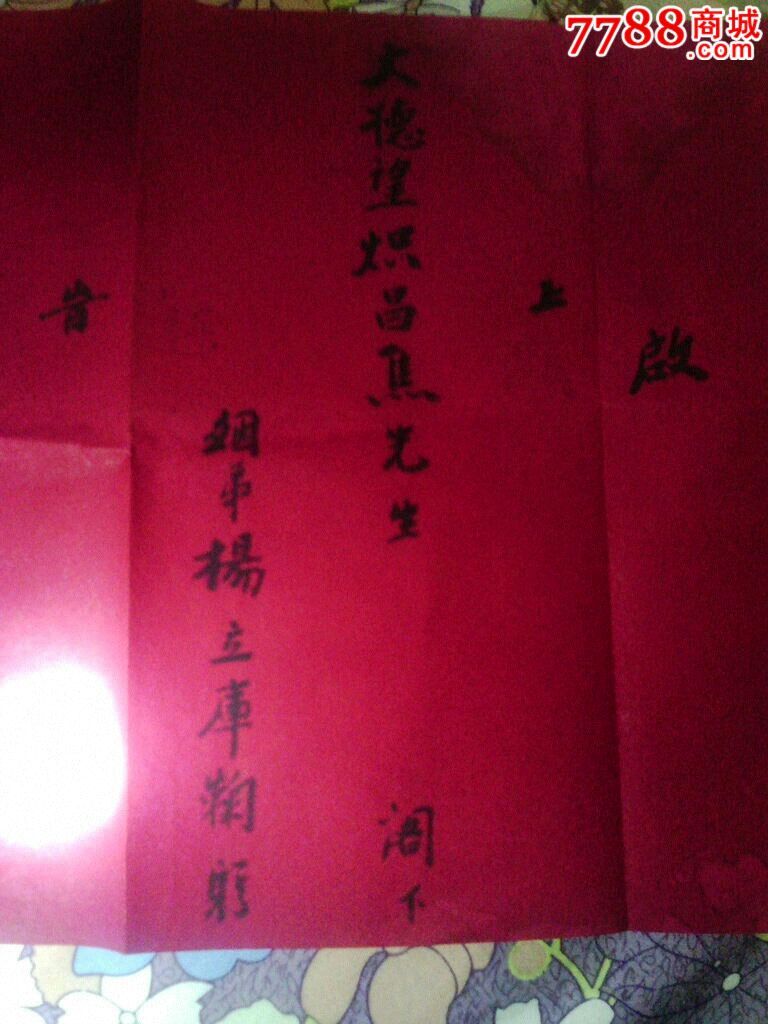 7788商城
.com
啟
上
大德望熾昌焦先生 閣下
姻弟楊立庫鞠躬